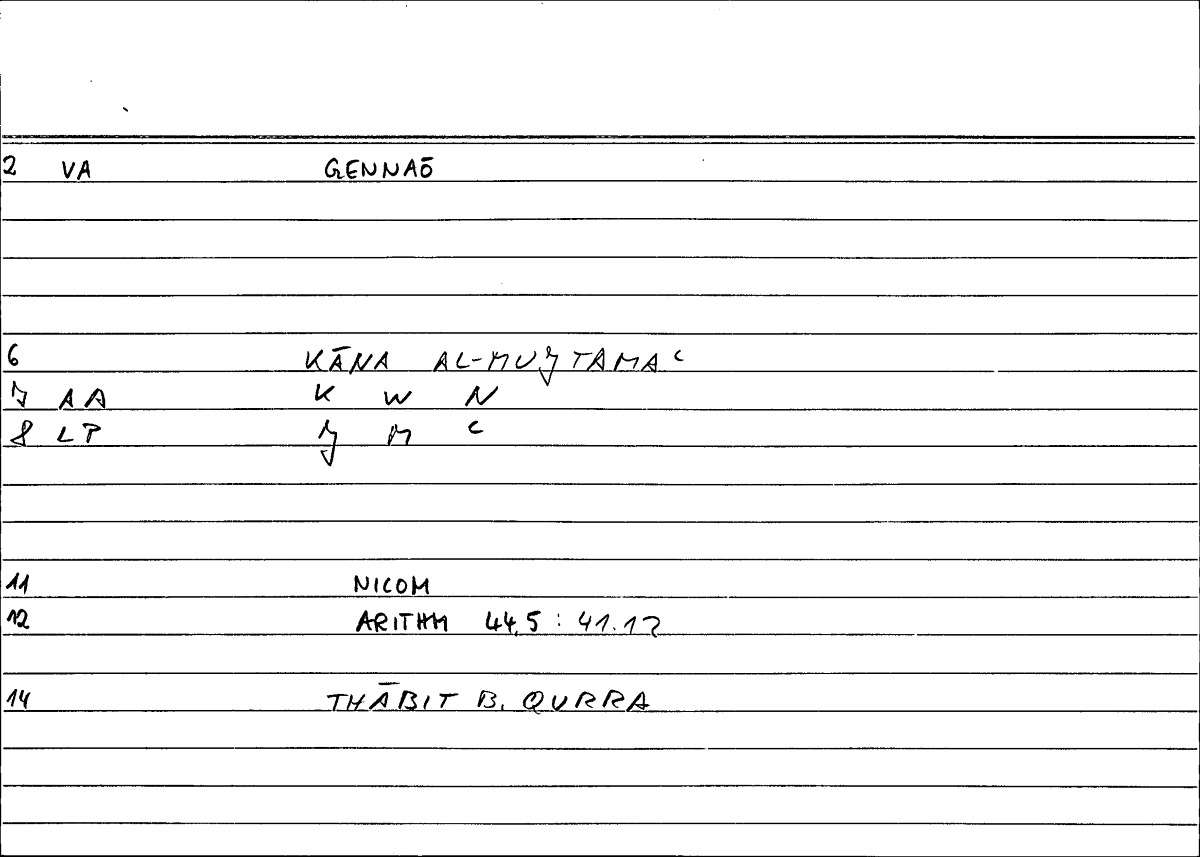 2 VA GENNAŌ
6 KĀNA AL-MUJTAMAʿ
7 AA K W N
8 LP J M ʿ
11 NICOM
12 ARITHM 44,5 : 41.12
14 THĀBIT B. QURRA